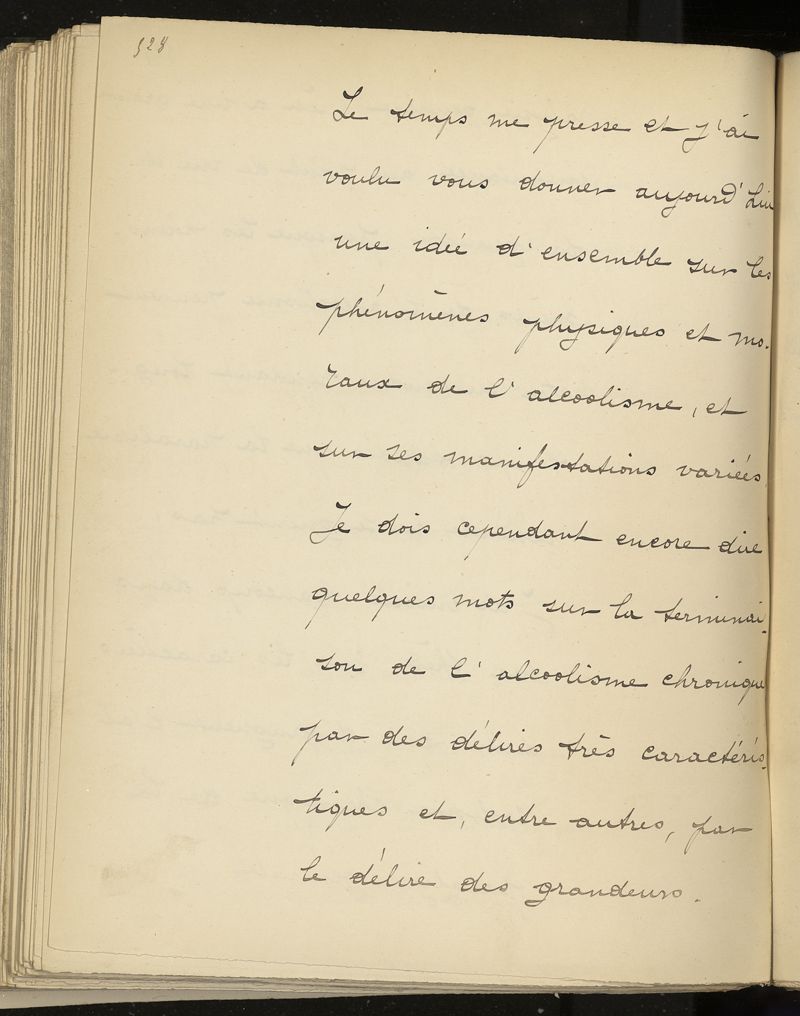 528
Le temps me presse et j'ai
voulu vous donner aujourd'hui
une idée d'ensemble sur les
phénomènes physiques et mo-
raux de l'alcoolisme, et
sur ses manifestations variées
Je dois cependant encore dire
quelques mots sur la terminai-
son de l'alcoolisme chronique
par des délires très caractéris-
tiques et, entre autres, par
le délire des grandeurs.